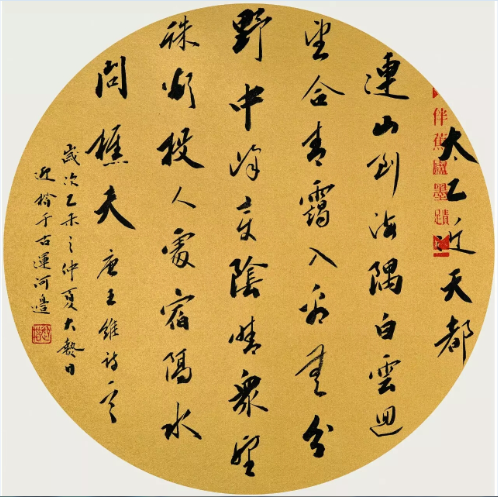 伴蕉窗墨蹟
太乙近天都
連山到海隅白雲迴
望合青靄入看無分
野中峰變陰晴衆壑
殊欲投人處宿隔水
問樵夫 唐王維詩
歲次乙未之仲夏大日
于古運河邊